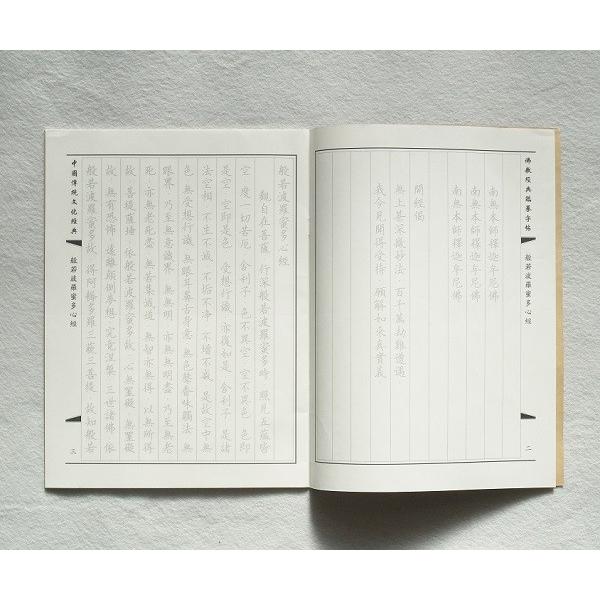 佛教經典臨摹字帖 般若波羅蜜多心經 二
南無本師釋迦牟尼佛
南無本師釋迦牟尼佛
南無本師釋迦牟尼佛
開經偈
無上甚深微妙法 百千萬劫難遭遇
我今見聞得受持 願解如來真實義
般若波羅蜜多心經
觀自在菩薩 行深般若波羅蜜多時 照見五蘊皆
空 度一切苦厄 舍利子 色不異空 空不異色 色即
是空 空即是色 受想行識 亦復如是 舍利子 是諸
法空相 不生不滅 不垢不淨 不增不減 是故空中無
色 無受想行識 無眼耳鼻舌身意 無色聲香味觸法 無
眼界 乃至無意識界 無無明 亦無無明盡 乃至無老
死 亦無老死盡 無苦集滅道 無智亦無得 以無所得
故 菩提薩埵 依般若波羅蜜多故 心無罣礙 無罣礙
故 無有恐怖 遠離顛倒夢想 究竟涅槃 三世諸佛 依
般若波羅蜜多故 得阿耨多羅三藐三菩提 故知般若
中國傳統文化經典 般若波羅蜜多心經 三